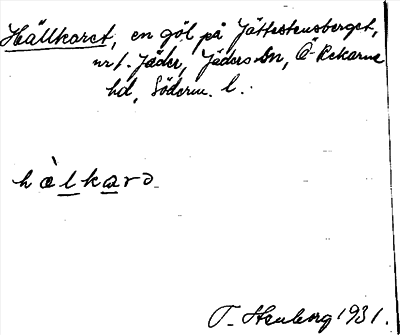 Hällkaret, en göl på Jättestensberget,
nr t. Jäder, Jäders sn, Ö-Rekarne
hd, Söderm. l.
hàlkarə
T. Henborg 1931.